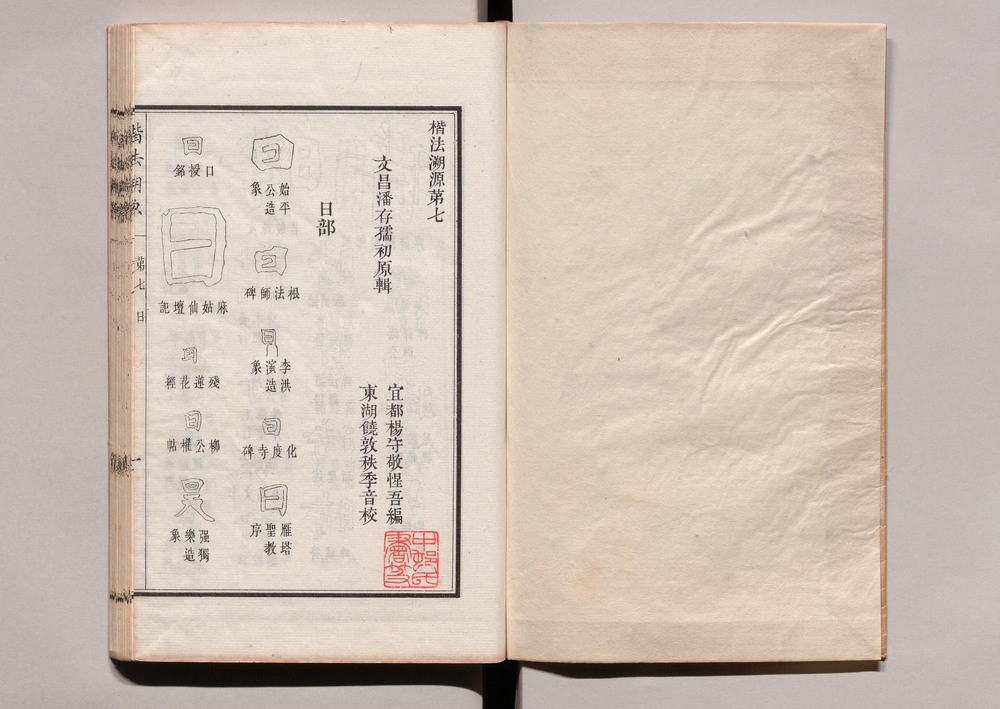 楷法溯源第七
文昌潘存孺初原輯
宜都楊守敬惺吾編
東湖饒敦秩季音校
日部
日
始平公造象
日
根法師碑
李洪演造象
日
化度寺碑
日
雁塔聖教序
日
口授銘
日
麻姑仙壇記
日
殘蓮花經
日
柳公權帖
强獨樂造象
楷法溯源
第七
日
一